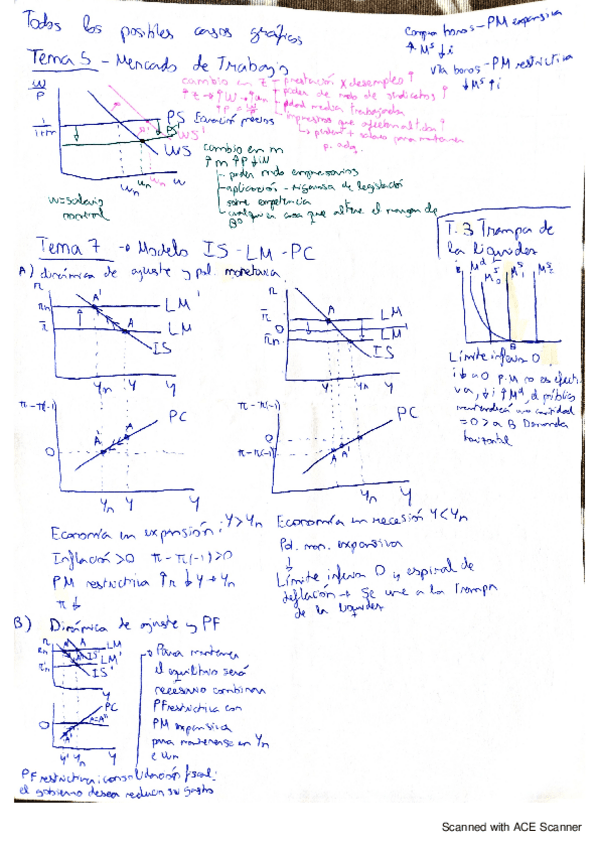 Todos los posibles casos gráficos
Compra bonos - PM expansiva
↑ Mˢ ↓ i
Vta bonos - PM restrictiva
↓ Mˢ ↑ i
Tema 5 - Mercado de Trabajo
cambio en z
prestación x desempleo ↑
poder de de sindicatos ↑
W/P
1/1+m
PS
Ecuación precios
WS'
WS
un
u
w = salario
nominal
cambio en m
↑ m ↑ P ↓ W
poder empresarios
aplicación rigurosa de legislación
sobre competencia
cualquier cosa que altere el margen de
Bº
Tema 7 → Modelo IS - LM - PC
A) dinámica de ajuste y pol. monetaria
r
rn
A'
LM'
LM
A
IS
Yn Y Y
π - π(-1)
PC
A
A'
0
Yn Y Y
r
r
0
rn
LM
LM
IS
Y Yn Y
π - π(-1)
PC
0
A A'
Yn Y
T. 3 Trampa de
la liquidez
Mᵈ
Mˢ₀
Mˢ₁
Mˢ₂
B
Límite inferior 0
i = 0 PM no es efecti-
va, ↓ i ↑ Mᵈ, el público
mantendrá una cantidad
= o > a B Demanda
horizontal
Economía en expansión: Y > Yn
Inflación > 0 π - π(-1) > 0
PM restrictiva ↑ r ↓ Y → Yn
π ↓
Economía en recesión Y < Yn
Pol. mon. expansiva
↓
Límite inferior 0 y espiral de
deflación → Se une a la trampa
de la liquidez
B) Dinámica de ajuste y PF
r
rn
LM
LM'
IS
IS'
Y
PC
0
A = A''
A'
Y' Yn Y
Para mantener
el equilibrio será
necesario combinar
PF restrictiva con
PM expansiva
para mantenerse en Yn
PF restrictiva: consolidación fiscal:
el gobierno desea reducir su gasto
Scanned with ACE Scanner